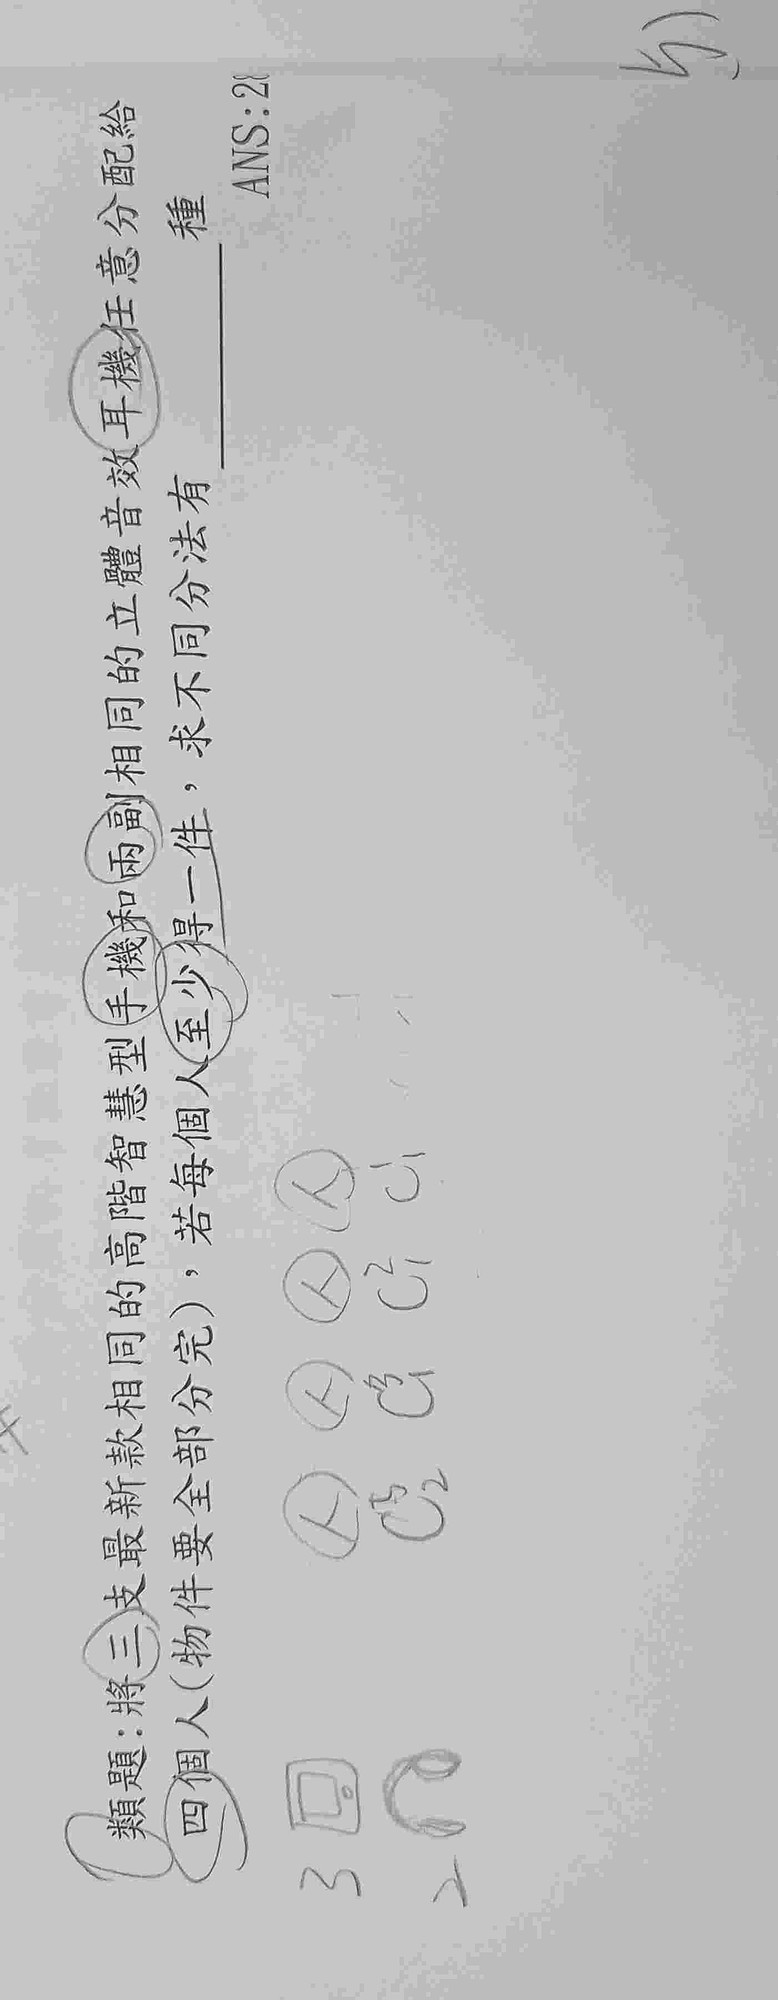 類題：將三支最新款相同的高階智慧型手機和兩副相同的立體音效耳機任意分配給
四個人(物件要全部分完)，若每個人至少得一件，求不同分法有______種
ANS:28
3 人 人 人 人
2 C⁵₂ C³₁ C²₁ C¹₁